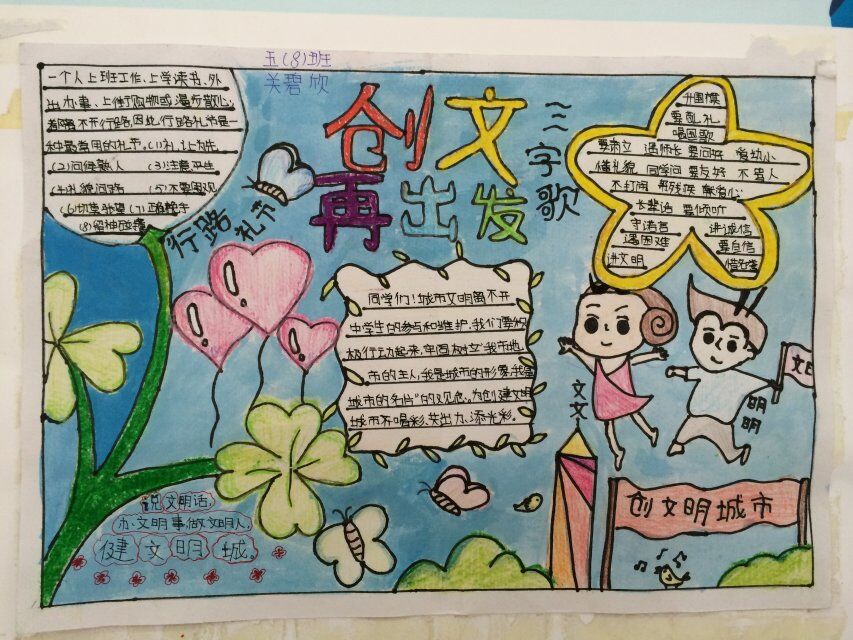 五(8)班
关碧欣
创文
再出发
三字歌
一个人上班工作、上学读书、外
出办事、上街购物或漫步散心，
都离不开行路，因此，行路礼节是一
种最常用的礼节。(1)礼让为先
(2)问候熟人 (3)注意卫生
(4)礼貌问路 (5)不要围观
(8)留神碰撞
行路
礼节
升国旗
要敬礼
唱国歌
要肃立 遇师长 要问好 爱幼小
懂礼貌 同学间 要友好 不骂人
不打闹 帮残疾 献爱心
长辈话 要倾听
守诺言 讲诚信
遇困难 要自信
讲文明
同学们！城市文明离不开
中学生的参与和维护，我们要积
极行动起来，牢固树立"我市地
市的主人，我是城市的形象，我是
城市的名片"的观念，为创建文明
城市不喝彩、共出力、添光彩。
文文
明明
创文明城市
说文明话，
办文明事做文明人，
健文明城。